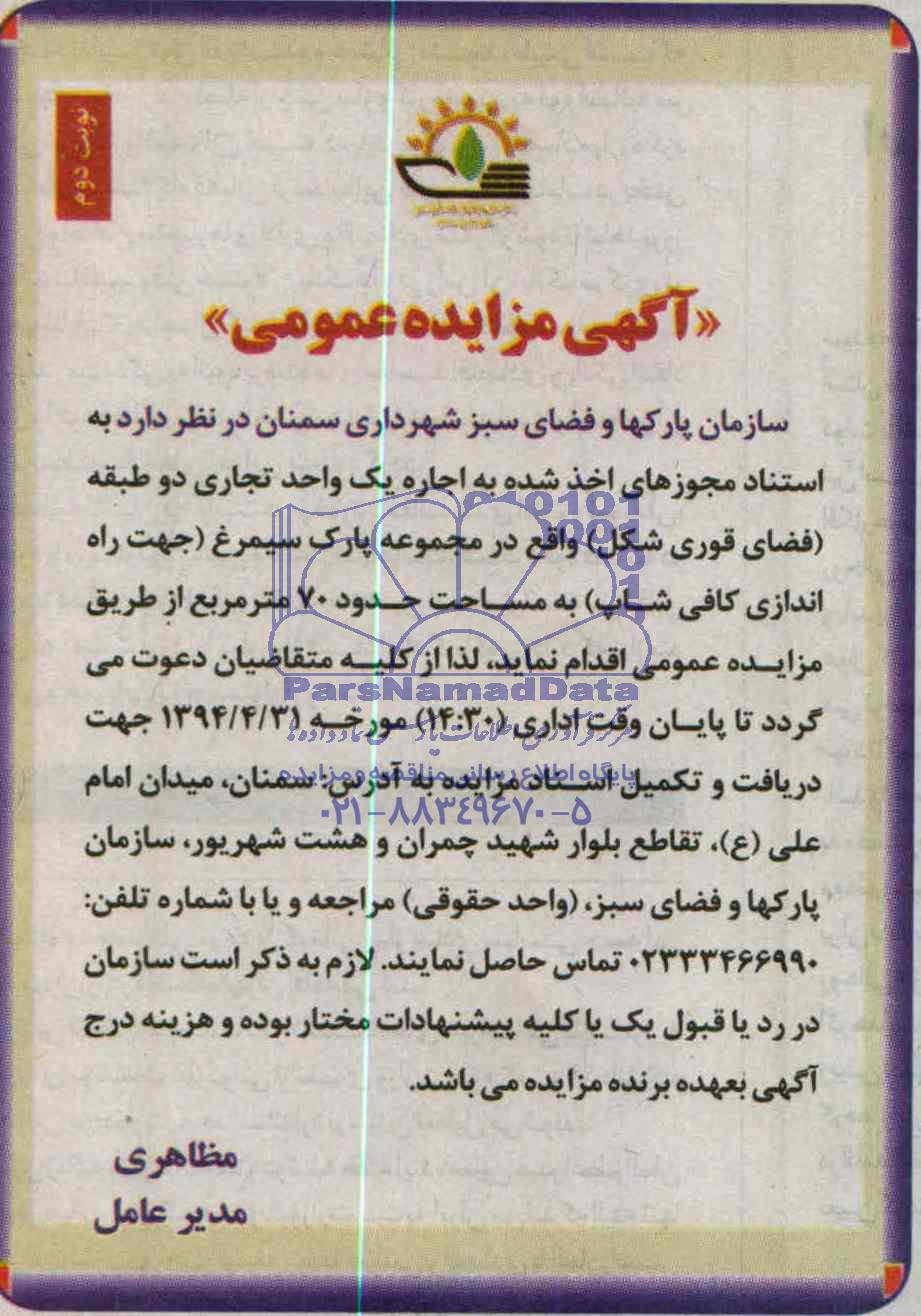 نوبت دوم
«آگهی مزایده عمومی»
سازمان پارکها و فضای سبز شهرداری سمنان در نظر دارد به
استناد مجوزهای اخذ شده به اجاره یک واحد تجاری دو طبقه
(فضای قوری شکل) واقع در مجموعه پارک سیمرغ (جهت راه
اندازی کافی شاپ) به مساحت حدود ۷۰ مترمربع از طریق
مزایده عمومی اقدام نماید، لذا از کلیه متقاضیان دعوت می
گردد تا پایان وقت اداری (۱۴:۳۰) مورخه ۱۳۹۴/۴/۳۱ جهت
دریافت و تکمیل اسناد مزایده به آدرس: سمنان، میدان امام
علی (ع)، تقاطع بلوار شهید چمران و هشت شهریور، سازمان
پارکها و فضای سبز، (واحد حقوقی) مراجعه و یا با شماره تلفن:
۰۲۳۳۳۴۶۶۹۹۰ تماس حاصل نمایند. لازم به ذکر است سازمان
در رد یا قبول یک یا کلیه پیشنهادات مختار بوده و هزینه درج
آگهی بعهده برنده مزایده می باشد.
مظاهری
مدیر عامل
ParsNamadData
پایگاه اطلاع رسانی مناقصه و مزایده
۰۲۱-۸۸۳۴۹۶۷۰-۵